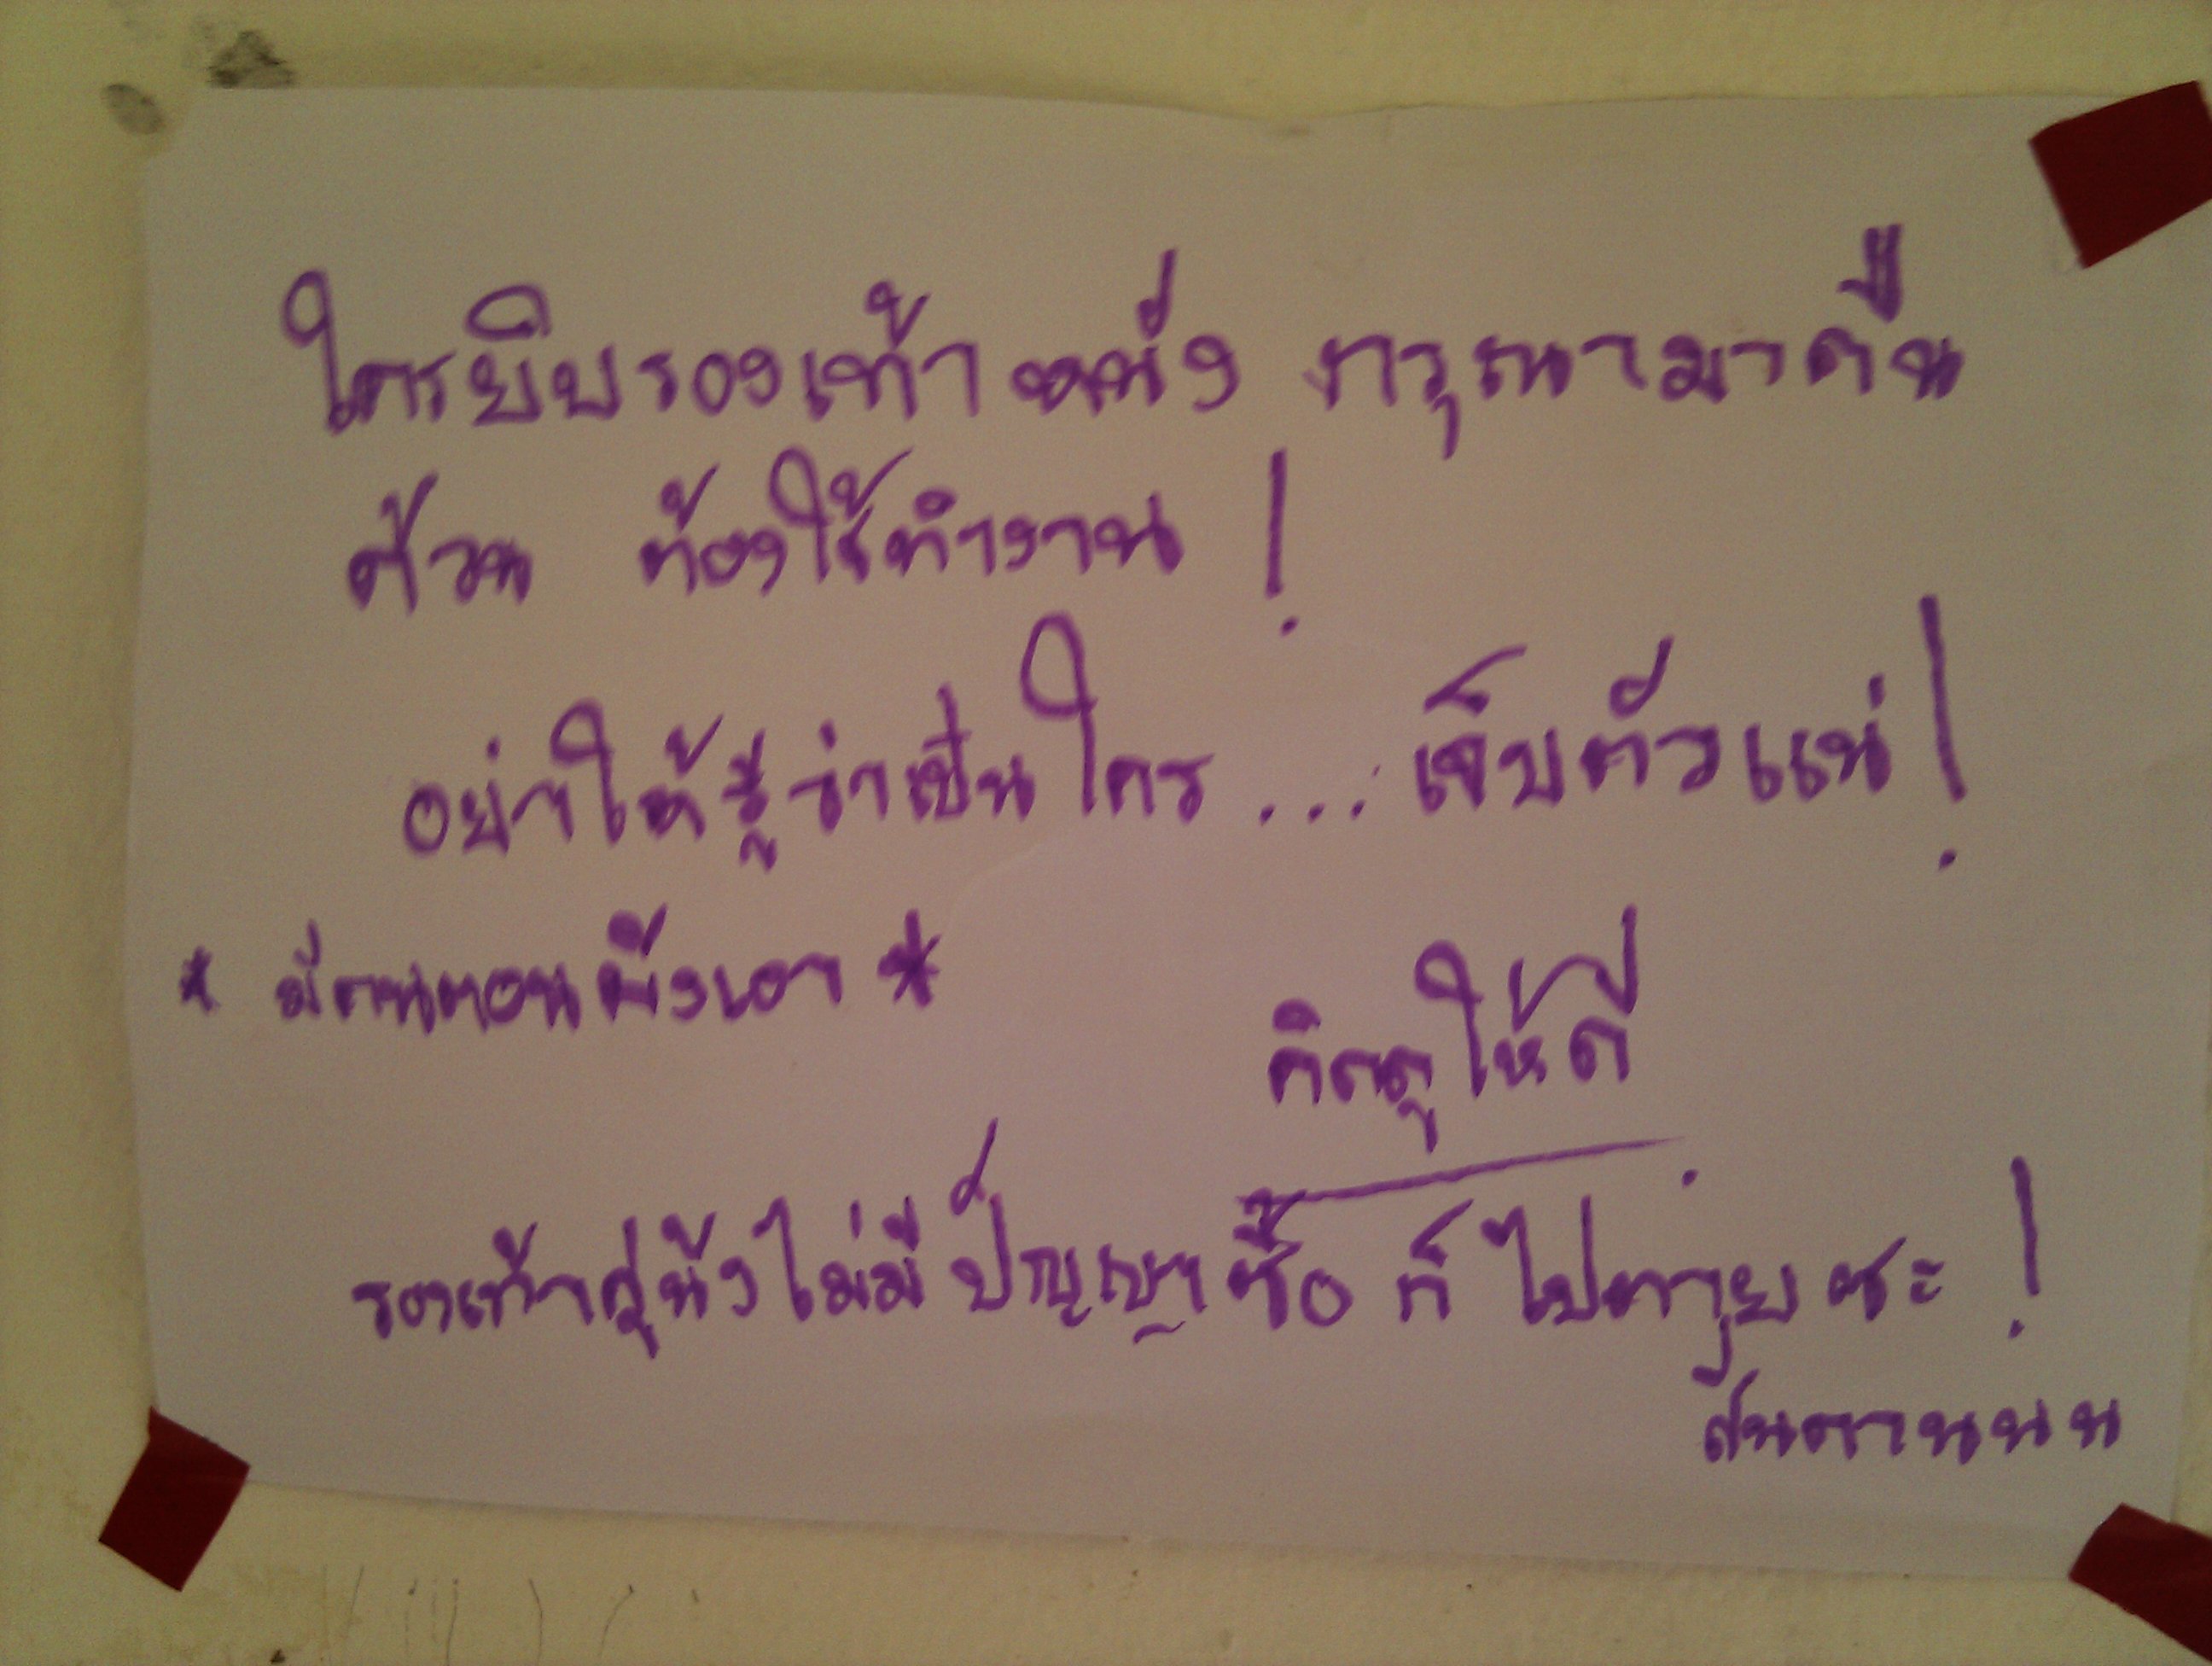 ใครยิบรองเท้าหนัง กรุณามาคืน
ด้วน ต้องใช้ทำงาน !
อย่าให้รู้ว่าเป็นใคร .... เจ็บตัวแน่ !
* มีคนตอน เอา *
คิดดูให้ดี
รองเท้าคู่นึงไม่มีปัญญาซื้อ ก็ ไปตายซะ !